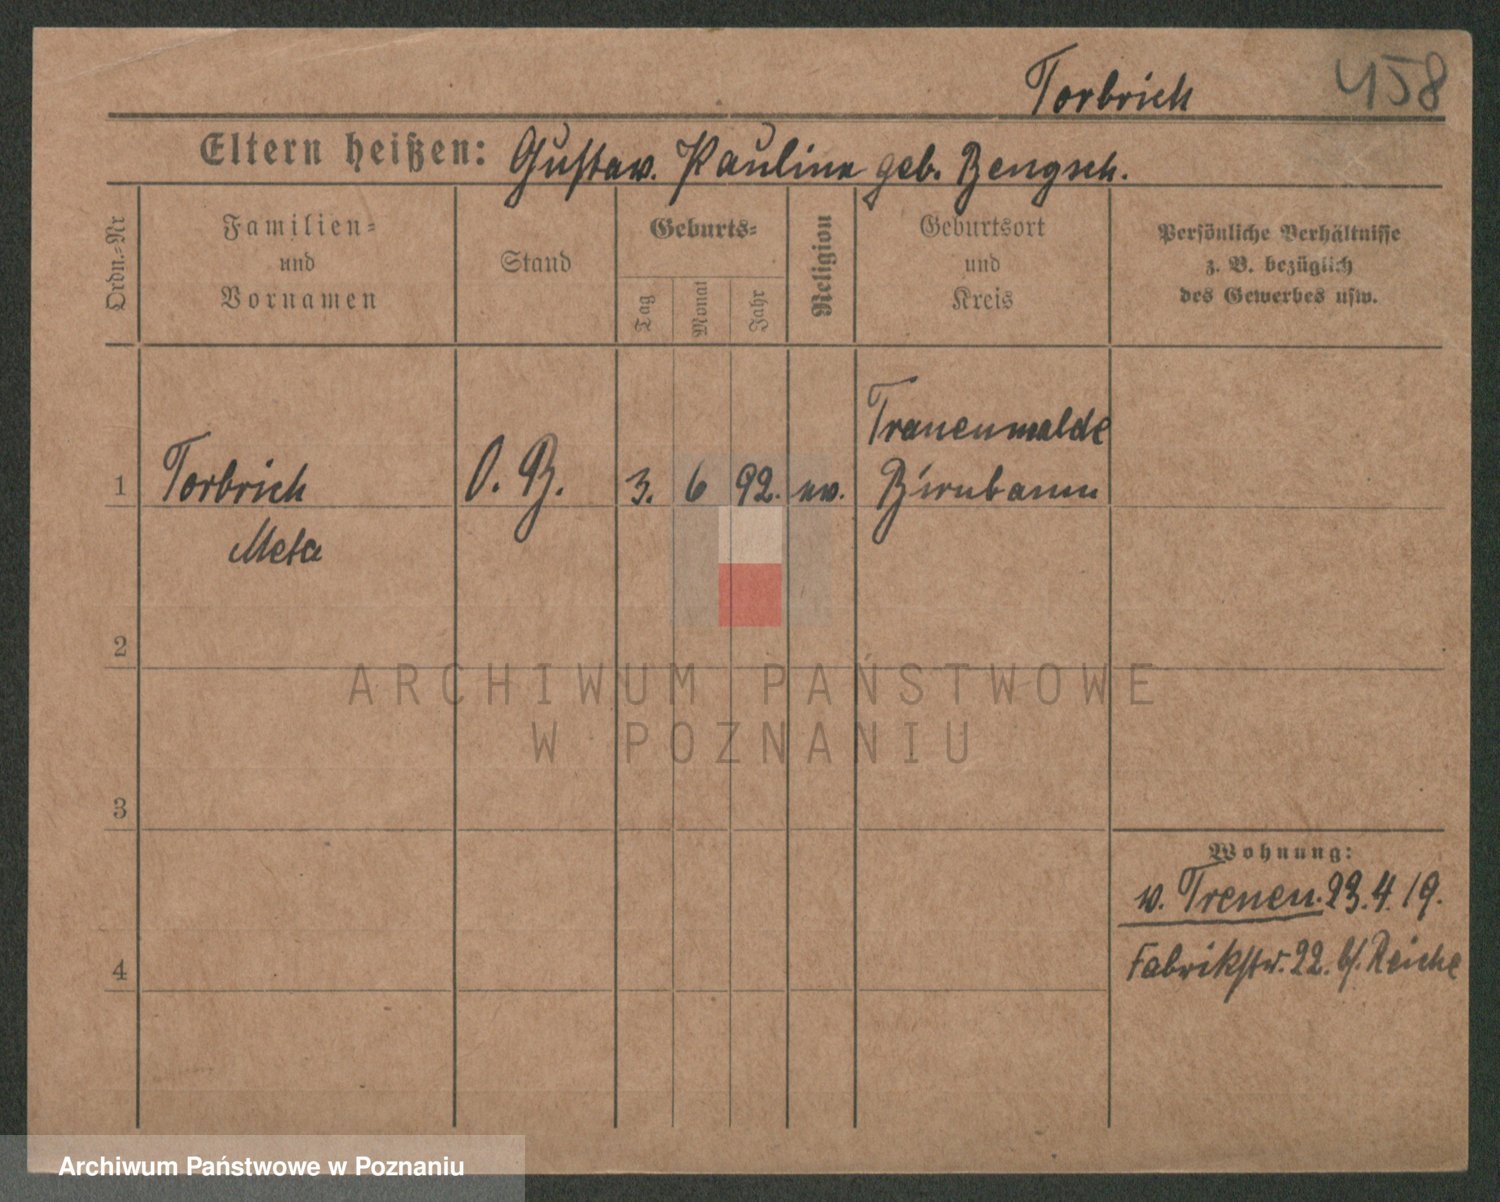 Torbrich 458
Eltern heißen: Gustav. Pauline geb. Bengsch.
Ordn.-Nr
Familien-
und
Vornamen
Stand
Geburts-
Tag
Monat
Jahr
Religion
Geburtsort
und
Kreis
Persönliche Verhältnisse
z. B. bezüglich
des Gewerbes usw.
Trauenwalde
1 Torbrich O. B. 3. 6 92. ev. Birnbaum
Meta
2
ARCHIWUM PAŃSTWOWE
W POZNANIU
3
Wohnung:
v. Treuen. 23.4.19.
4 Fabrikstr. 22. b/. Reiche
Archiwum Państwowe w Poznaniu